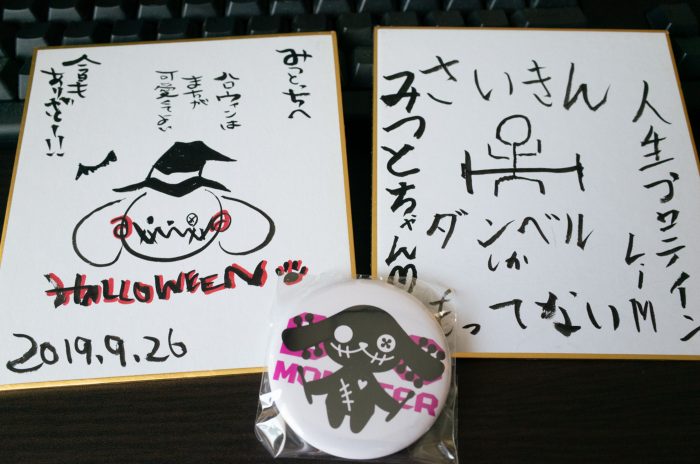 みつとっちへ
ハロウィンは
まちが
可愛くてよい
今日も
ありがとー!!
HALLOWEEN
2019.9.26
さいきん
ダンベル
しか
もってない
人生プロテイン
レーM
みつとちゃんM
MONSTER